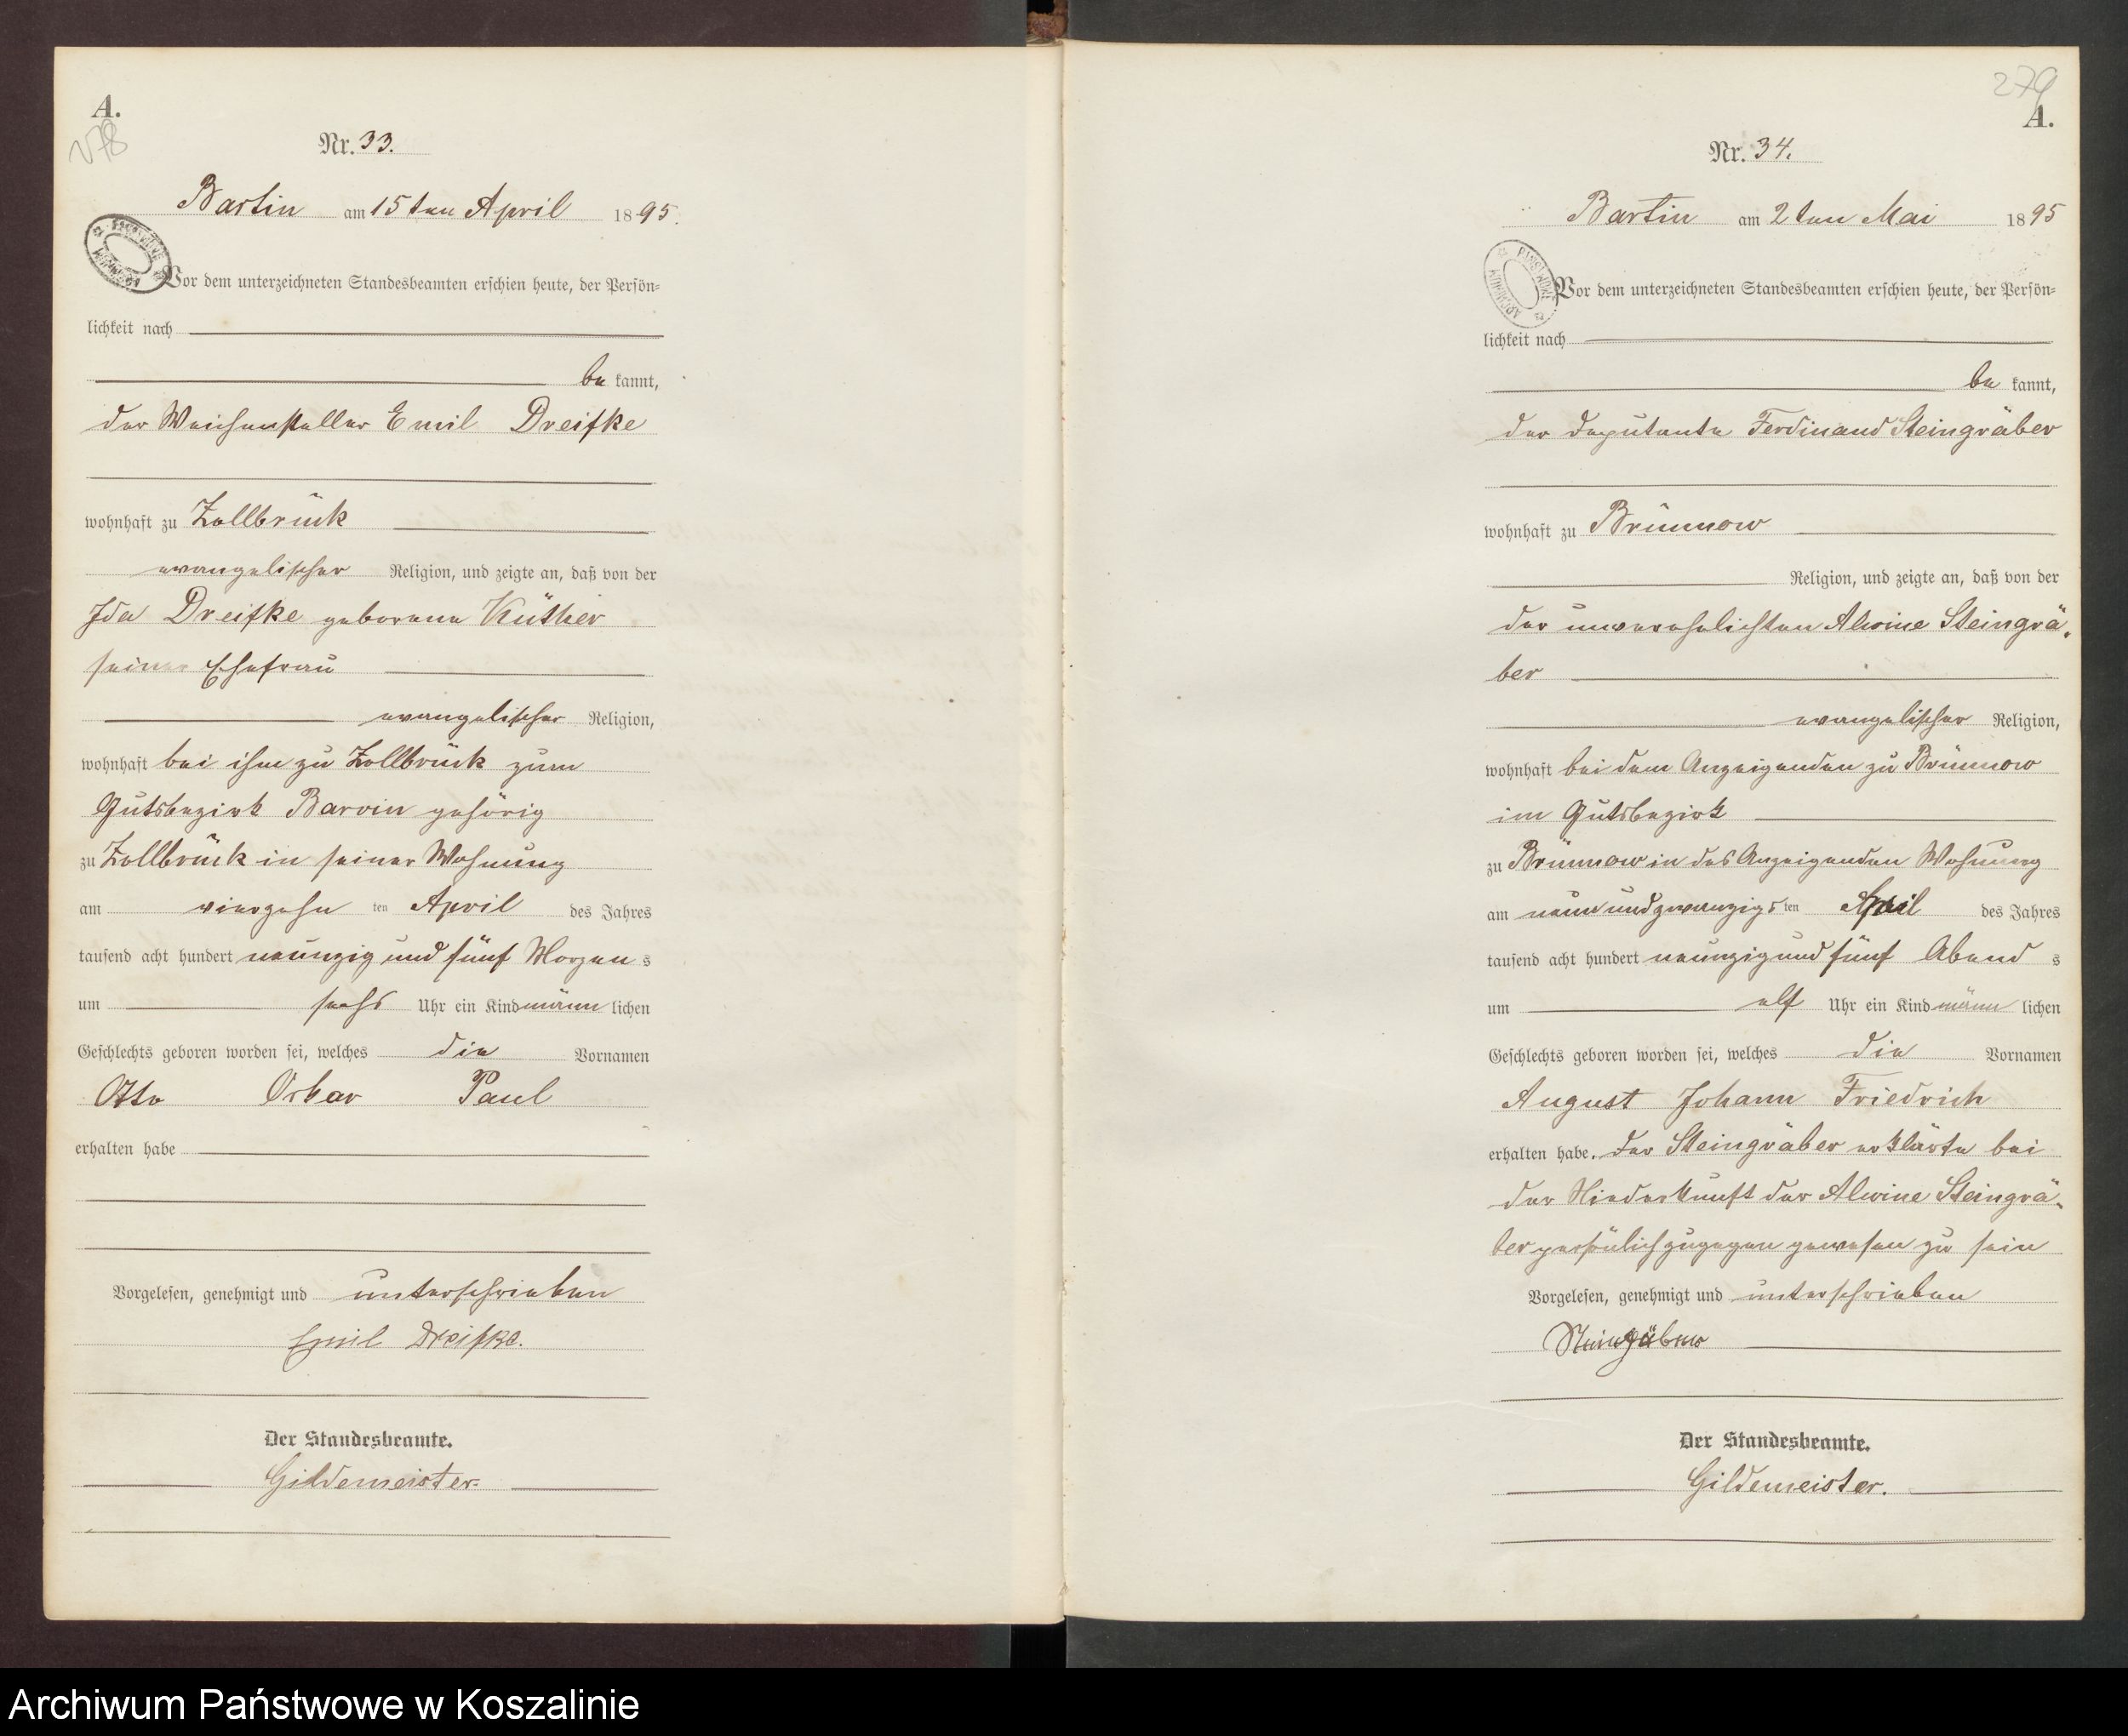 A.
278
Nr. 33.
Bartin am 15ten April 1895.
Vor dem unterzeichneten Standesbeamten erschien heute, der Persön=
lichkeit nach
be kannt,
der Weichensteller Emil Dreifke
wohnhaft zu Zollbrück
evangelischer Religion, und zeigte an, daß von der
Ida Dreifke geborene Küther
seiner Ehefrau
evangelischer Religion,
wohnhaft bei ihm zu Zollbrück zum
Gutsbezirk Barvin gehörig
zu Zollbrück in seiner Wohnung
am vierzehn ten April des Jahres
tausend acht hundert neunzig und fünf Morgen s
um sechs Uhr ein Kind männ lichen
Geschlechts geboren worden sei, welches die Vornamen
Otto Oskar Paul
erhalten habe
Vorgelesen, genehmigt und unterschrieben
Emil Dreifke.
Der Standesbeamte.
Gildemeister.
279
A.
Nr. 34.
Bartin am 2ten Mai 1895
Vor dem unterzeichneten Standesbeamten erschien heute, der Persön=
lichkeit nach
be kannt,
der Deputante Ferdinand Steingräber
wohnhaft zu Brünnow
Religion, und zeigte an, daß von der
der unverehelichten Alwine Steingrä-
ber
evangelischer Religion,
wohnhaft bei dem Anzeigenden zu Brünnow
im Gutsbezirk
zu Brünnow in des Anzeigenden Wohnung
am neunundzwanzigs ten April des Jahres
tausend acht hundert neunzig und fünf Abend s
um elf Uhr ein Kind männ lichen
Geschlechts geboren worden sei, welches die Vornamen
August Johann Friedrich
erhalten habe. Der Steingräber erklärte bei
der Niederkunft der Alwine Steingrä-
ber persönlich zugegen gewesen zu sein
Vorgelesen, genehmigt und unterschrieben
Steingräber
Der Standesbeamte.
Gildemeister.
Archiwum Państwowe w Koszalinie